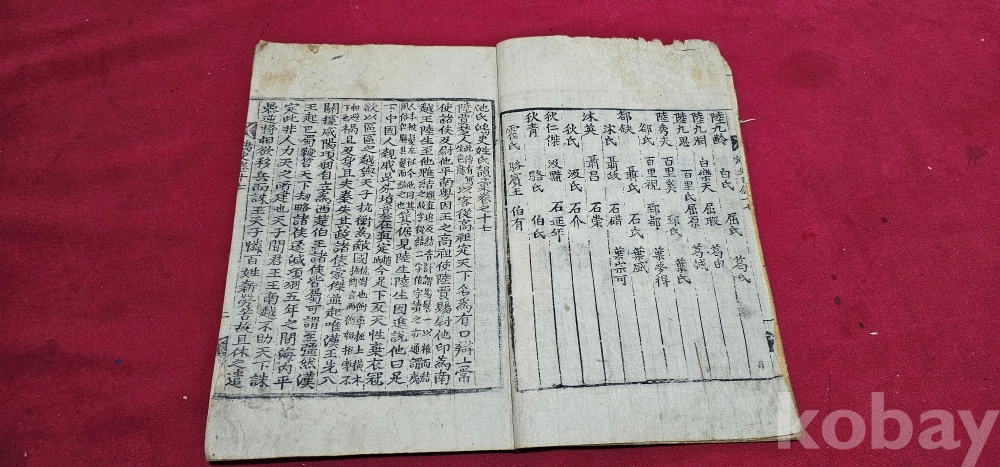 陸九齡 白氏 屈氏 葛氏
陸九淵 白樂天 屈瑕 葛由
陸九思 百里氏 屈原 葛
陸秀夫 百里奚 郅氏 葉氏
郤氏 百里視 郅都 葉夢得
郤缺 聶氏 石氏 葉
沐氏 聶 石碏 葉宗可
沐英 聶昌 石
狄氏 汲氏 石介
狄仁傑 汲黯 石延年
狄青 駱氏 伯氏
霍氏 駱賓王 伯有
氏鴻史姓氏韻彙卷之十七
陸賈楚人 以客從高祖定天下名爲有口辯士常
使諸侯及尉他平南粤因王之高祖使陸賈賜尉他印爲南
越王陸生至他魋結
倨見陸生陸生因進說他曰足
下中國人親戚昆弟墳墓在真定今足下反天性棄衣冠
欲以區區之越與天子抗衡爲敵國
禍且及身矣夫秦失其政諸侯豪傑並起唯漢王先入
關據咸陽項羽自立爲西楚伯王諸侯皆屬可謂至彊然漢
王起巴蜀鞭笞天下劫略諸侯遂滅項羽五年之間海內平
定此非人力天之所建也天子聞君王王南越不助天下誅
暴逆將相欲移兵而誅王天子憐百姓新勞苦故且休之遣
kobay